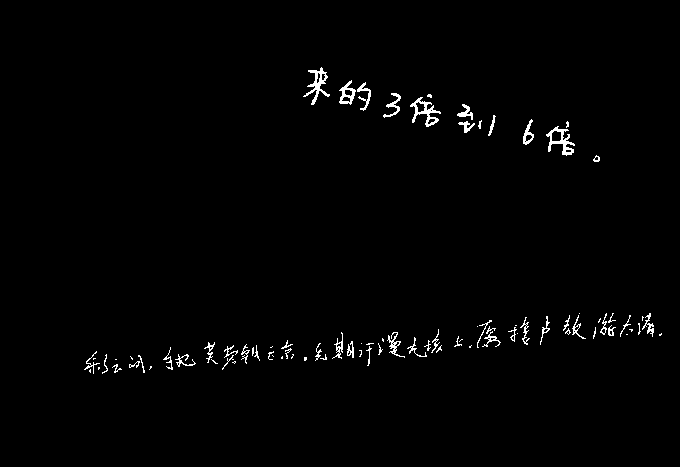 来的3倍到6倍。
彩云,手把芙蓉朝玉京。先期汗漫九垓上,愿接卢敖游太清。